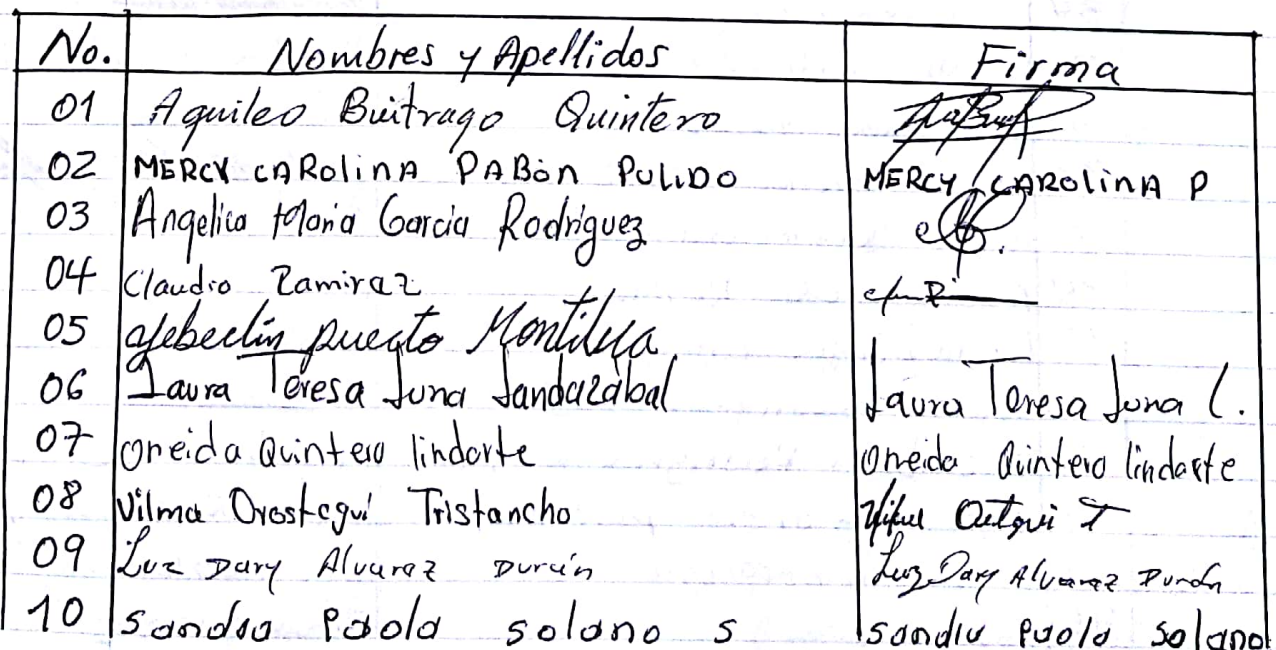 No. Nombres y Apellidos Firma
01 Aquileo Buitrago Quintero
02 MERCY CAROlinA PABòn PULIDO MERCY CAROlinA P
03 Angelica Maria Garcia Rodriguez
04 Claudio Ramiraz
05 Montilla
06 Laura Teresa Luna Landazabal Laura Teresa Luna L.
07 Oneida Quintero lindarte Oneida Quintero lindarte
08 Vilma Orostegui Tristancho
09 Luz Dary Alvarez Durán Luz Dary Alvarez Durán
10 Sandra Paola Solano S Sandra Paola Solano